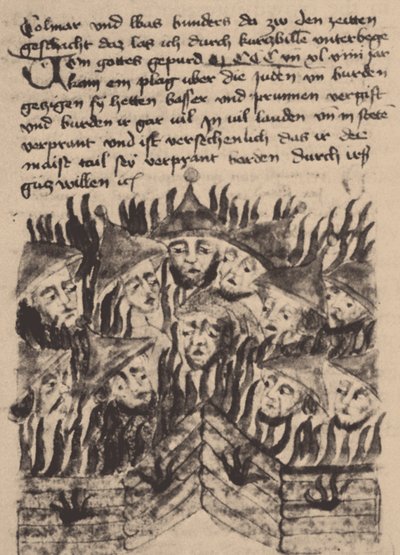 Colmar vnd was bunders da zw den zeitten
geschicht daz las ich durch kurtzbille vnterbege
gottes gepurd vn xl viiii jar
kam ein plag vber die juden vn burden
getzigen sy hetten basser vnd prunnen vergift
vnd burden ir gar vil In vil landen vn in stete
verprant vnd ist versehenlich das ir der
maist tail sey verprant borden durch irs
gutz willen